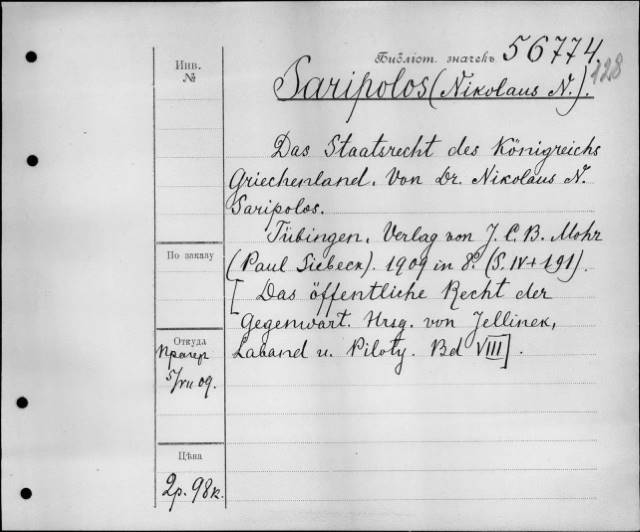 Инв.
№
Библіот. значекъ 56774.
128
Saripolos (Nikolaus N.).
Das Staatsrecht des Königreichs
Griechenland. Von Dr. Nikolaus N.
Saripolos.
Tübingen. Verlag von J. C. B. Mohr
(Paul Siebeck). 1909 in 8º. (S. IV+191).
[Das öffentliche Recht der
Gegenwart. Hrsg. von Jellinek,
Laband u. Piloty. Bd VIII].
По заказу
Откуда
Прагер
5/VII 09.
Цѣна
2р. 98к.